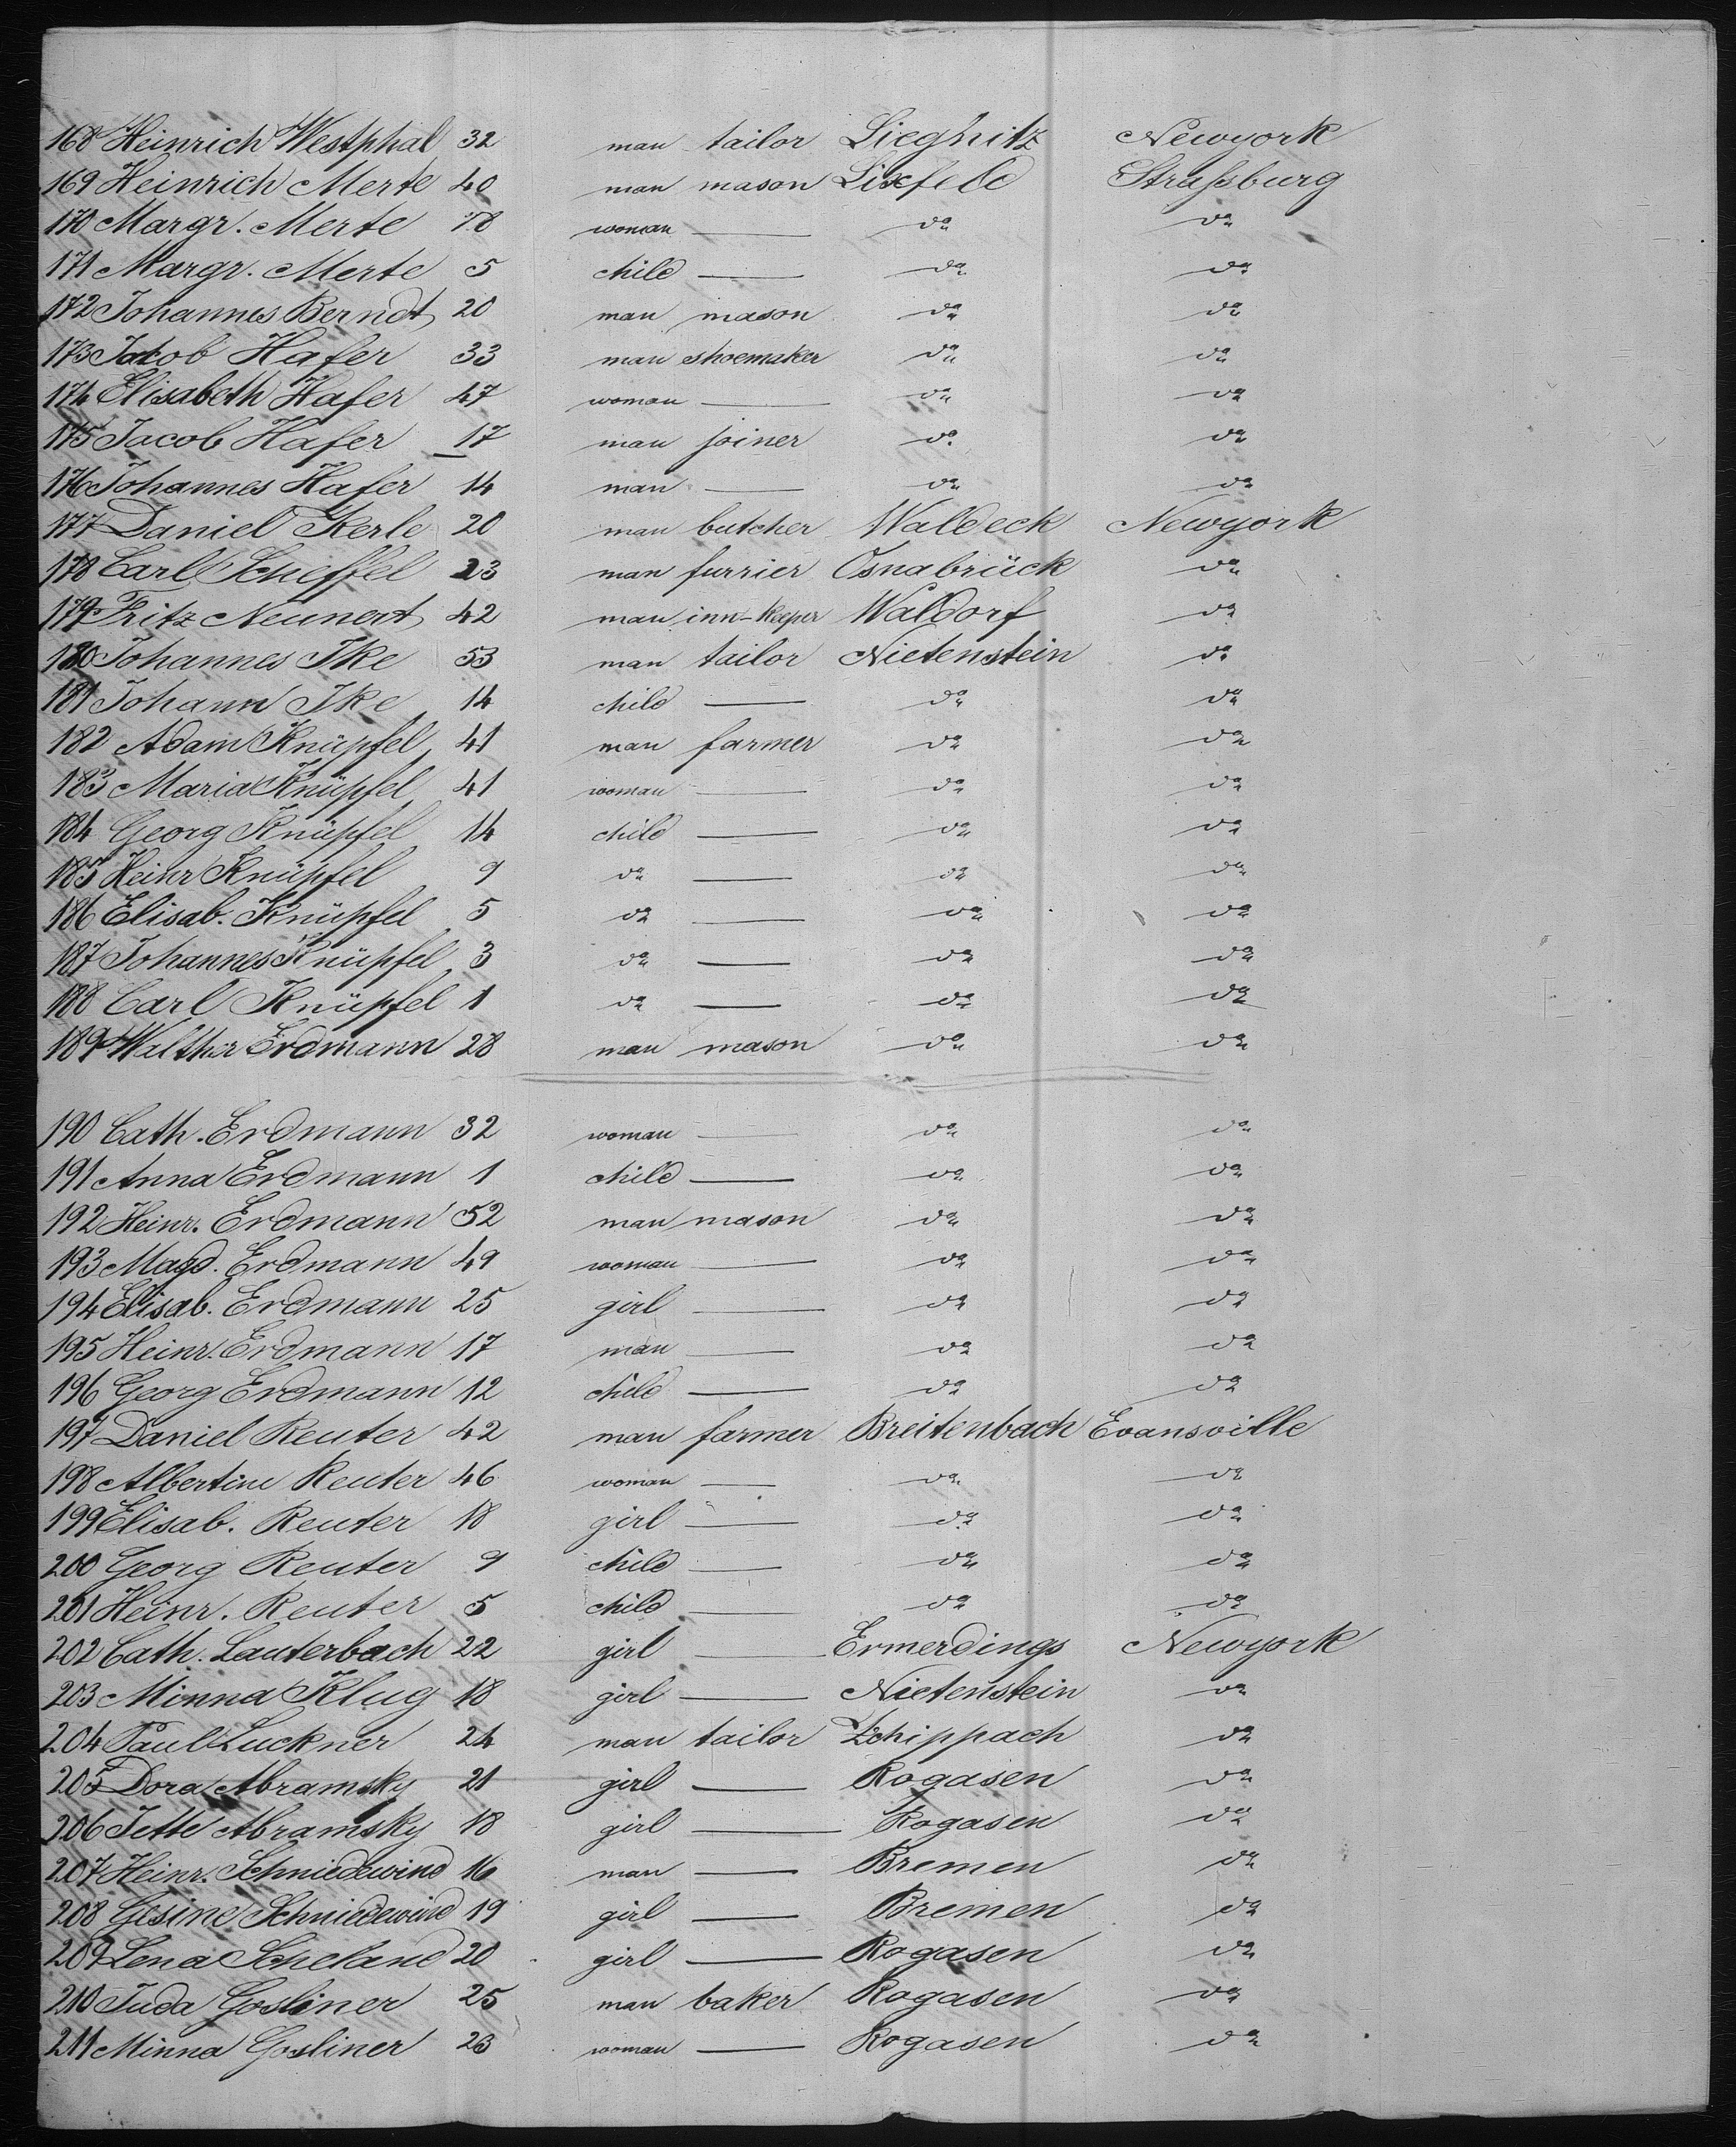 168 Heinrich Westphal 32 man tailor Lieghitz Newyork
169 Heinrich Merte 40 man mason Lixfeld Straßburg
170 Margr. Merte 78 woman — do do
171 Margr. Merte 5 child — do do
172 Johannes Berndt 20 man mason do do
173 Jacob Hafer 33 man shoemaker do do
174 Elisabeth Hafer 47 woman — do do
175 Jacob Hafer 17 man joiner do do
176 Johannes Hafer 14 man — do do
177 Daniel Kerle 20 man butcher Waldeck Newyork
178 Carl Scheffel 23 man furrier Osnabrück do
179 Fritz Neunert 42 man inn-keeper Waldorf do
180 Johannes Ike 53 man tailor Nietenstein do
181 Johann Ike 14 child — do do
182 Adam Knüpfel 41 man farmer do do
183 Maria Knüpfel 41 woman — do do
184 Georg Knüpfel 14 child — do do
185 Heinr Knüpfel 9 do — do do
186 Elisab. Knüpfel 5 do — do do
187 Johannes Knüpfel 3 do — do do
188 Carl Knüpfel 1 do — do do
189 Walther Erdmann 28 man mason do do
190 Cath. Erdmann 32 woman — do do
191 Anna Erdmann 1 child — do do
192 Heinr. Erdmann 52 man mason do do
193 Magd. Erdmann 49 woman — do do
194 Elisab. Erdmann 25 girl — do do
195 Heinr. Erdmann 17 man — do do
196 Georg Erdmann 12 child — do do
197 Daniel Reuter 42 man farmer Breitenbach Evansville
198 Albertine Reuter 46 woman — do do
199 Elisab. Reuter 18 girl — do do
200 Georg Reuter 9 child — do do
201 Heinr. Reuter 5 child — do do
202 Cath. Lauterbach 22 girl — Ermerdings Newyork
203 Minna Klug 18 girl — Nietenstein do
204 Paul Luckner 24 man tailor Zchippach do
205 Dora Abramsky 21 girl — Rogasen do
206 Jette Abramsky 18 girl — Rogasen do
207 Heinr. Schniedewind 16 man — Bremen do
208 Gesine Schniedewind 19 girl — Bremen do
209 Lena Scheland 20 girl — Rogasen do
210 Juda Gosliner 25 man baker Rogasen do
211 Minna Gosliner 23 woman — Rogasen do